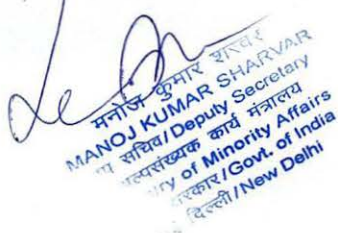 मनोज कुमार शरवर
MANOJ KUMAR SHARVAR
सचिव/Deputy Secretary
अल्पसंख्यक कार्य मंत्रालय
of Minority Affairs
/Govt. of India
दिल्ली/New Delhi